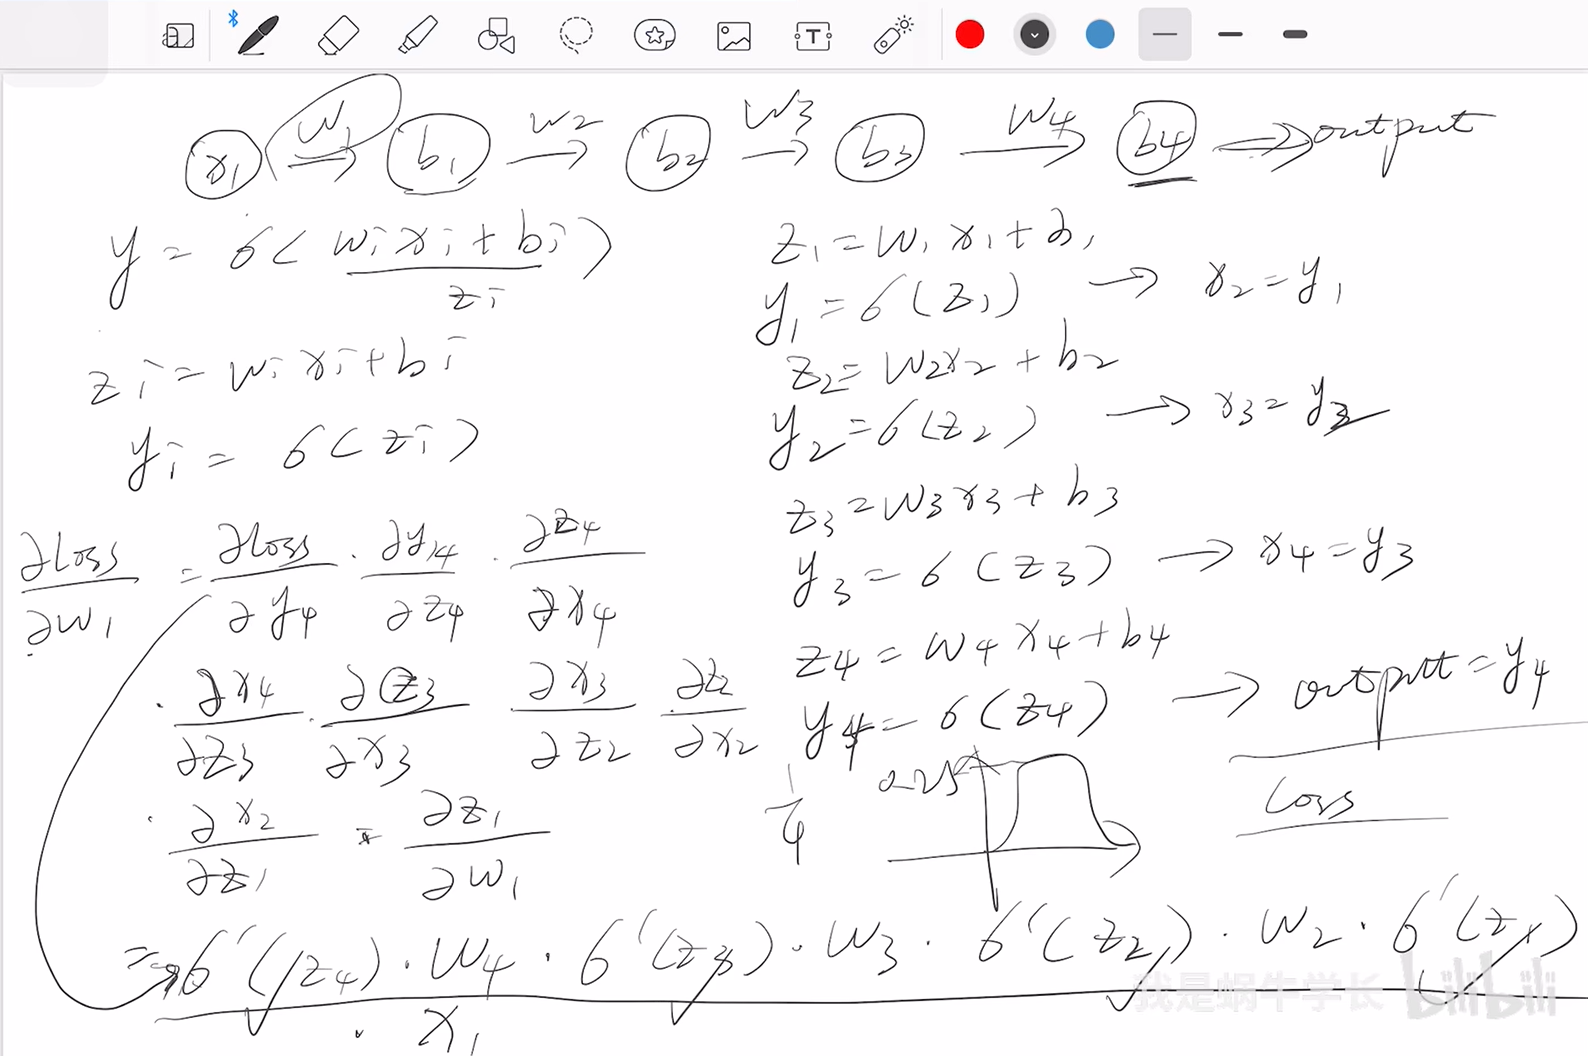 x₁ → w₁ → b₁ → w₂ → b₂ → w₃ → b₃ → w₄ → b₄ ⇒ output
y = σ(wᵢxᵢ + bᵢ)
zᵢ
zᵢ = wᵢxᵢ + bᵢ
yᵢ = σ(zᵢ)
z₁ = w₁x₁ + b₁
y₁ = σ(z₁) → x₂ = y₁
z₂ = w₂x₂ + b₂
y₂ = σ(z₂) → x₃ = y₂
z₃ = w₃x₃ + b₃
y₃ = σ(z₃) → x₄ = y₃
z₄ = w₄x₄ + b₄
y₄ = σ(z₄) → output = y₄
loss
∂loss/∂w₁ = ∂loss/∂y₄ · ∂y₄/∂z₄ · ∂z₄/∂x₄
· ∂x₄/∂z₃ · ∂z₃/∂x₃ ∂x₃/∂z₂ ∂z₂/∂x₂
· ∂x₂/∂z₁ · ∂z₁/∂w₁
1/4
0.25
= σ'(z₄) · w₄ · σ'(z₃) · w₃ · σ'(z₂) · w₂ · σ'(z₁)
· x₁
我是蜗牛学长 bilibili